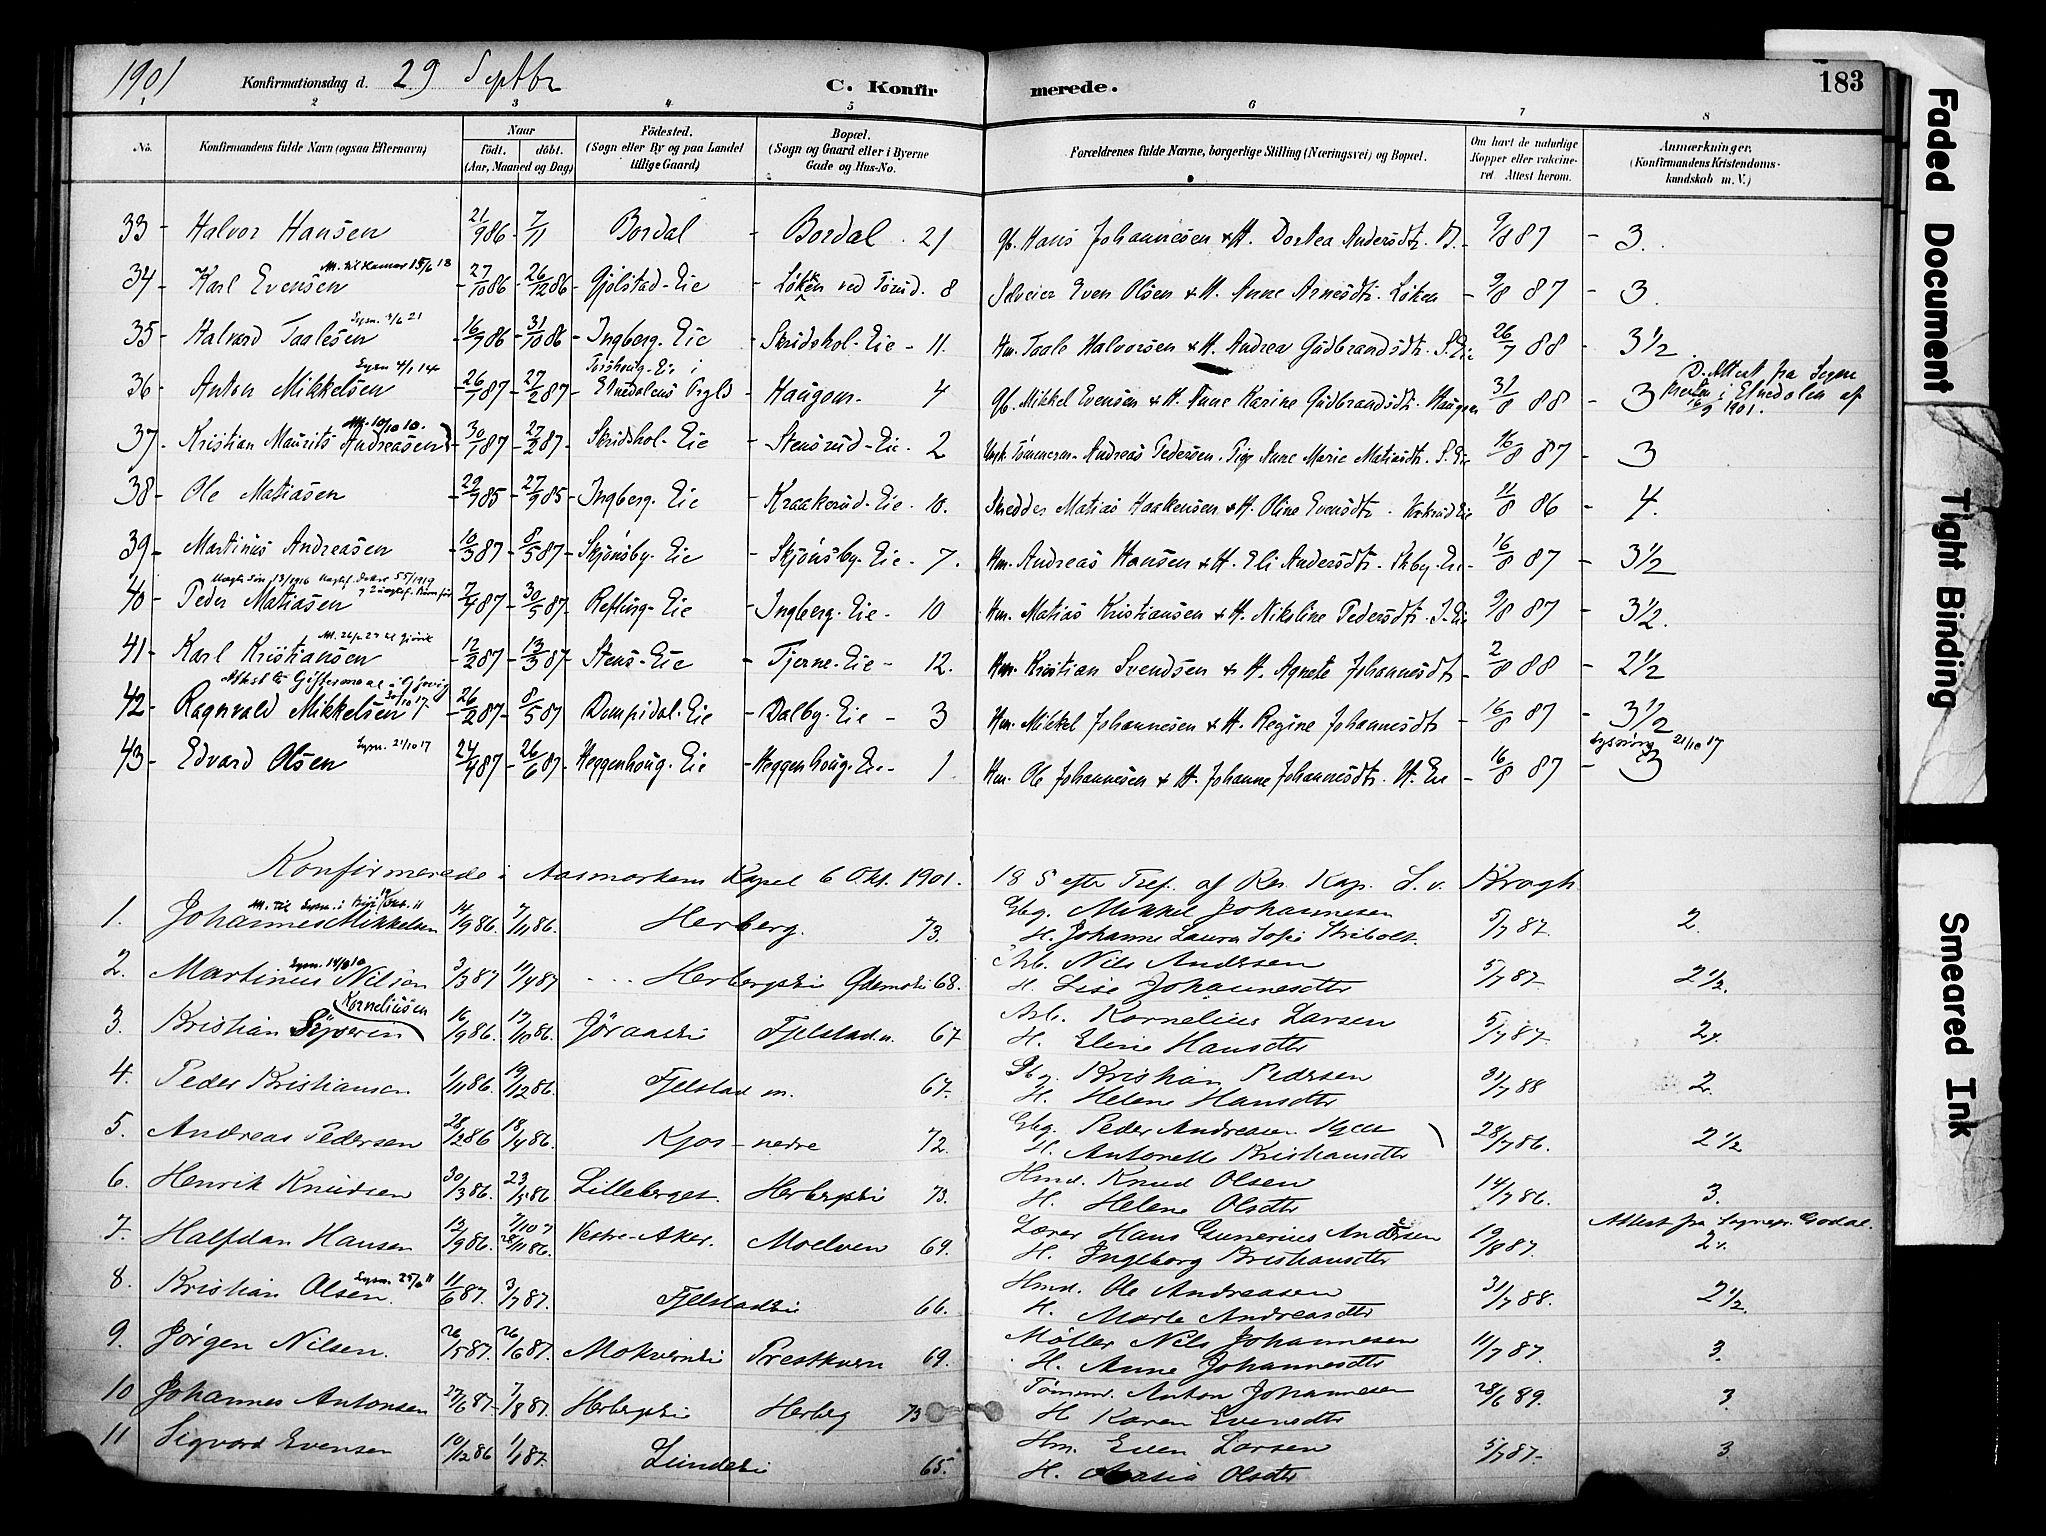 1901 Konfirmationsdag d. 29 Septbr C. Konfirmerede. 183
1 2 3 4 5 6 7 8
No. Konfirmandens fulde Navn (ogsaa Efternavn) Naar födt. döbt. (Aar, Maaned og Dag) Födested. (Sogn eller By og paa Landet tillige Gaard) Bopæl. (Sogn og Gaard eller i Byerne Gade og Hus-No. Forældrenes fulde Navne, borgerlige Stilling (Næringsvei) og Bopæl. Om havt de naturlige Kopper eller vakcineret. Attest herom. Anmærkninger. (Konfirmandens Kristendomskundskab m. V.)
33 - Halvor Hansen 21/9 86 - 7/11 Bordal - Bordal . 21 Gb. Hans Johannesen & H. Dortea Andersdtr. B. - 9/8 87 - 3.
34 - Karl Evensen - 27/10 86 - 26/12 86 - Gjölstad-Eie - Löken ved Törud. 8 Selveier Even Olsen & H. Anne Arnesdtr. Löken - 9/8 87 - 3.
35 - Halvard Taalesen - 16/9 86 - 31/10 86 - Ingberg-Eie - Skridshol-Eie - 11. Hm. Taale Halvorsen & H. Andrea Gudbrandsdtr. S. Eie 26/7 88 - 3 1/2
36 - Anton Mikkelsen - 26/1 87 - 27/2 87 - Etnedalens Prgld - Haugom - 4 Gb. Mikkel Evensen & H. Anne Karine Gudbrandsdtr. Haugom 31/8 88 - 3 D. Attest fra Sogne presten i Etnedalen af 16/9 1901.
37 - Kristian Maurits Andreasen - 30/1 87 - 27/2 87 - Skridshol-Eie - Stensrud-Eie - 2 Ungk. Tömmerm. Andreas Pedersen. Pige Anne Marie Matiasdtr. S. Eie 16/8 87 - 3
38 - Ole Matiasen - 29/7 85 - 27/9 85 - Ingberg-Eie - Kraakerud-Eie - 10. Skredder Matias Haakensen & H. Oline Evensdtr. 11/8 86 - 4.
39 - Martinus Andreasen - 10/3 87 - 8/5 87 - Skjönsby-Eie - Skjönsby-Eie - 7. Hm. Andreas Hansen & H. Eli Andersdtr. Skby-Eie - 16/8 87 - 3 1/2
40 - Peder Matiasen - 7/4 87 - 30/5 87 - Refling-Eie - Ingberg-Eie - 10 Hm. Matias Kristiansen & H. Nikoline Pedersdtr. I-Eie 9/8 87 - 3 1/2.
41 - Karl Kristiansen - 12/2 87 - 13/3 87 - Stens-Eie - Tjerne-Eie - 12. Hm. Kristian Svendsen & H. Agnete Johannesdtr - 2/8 88 - 2 1/2
42 - Ragnvald Mikkelsen - 26/2 87 - 8/5 87 Dompidal-Eie - Dalby-Eie - 3 Hm. Mikkel Johannesen & H. Regine Johannesdtr - 16/8 87 - 3 1/2
43 - Edvard Olsen - 24/4 87 - 26/6 87 - Heggenhoug-Eie - Heggenhoug-Eie - 1 Hm. Ole Johannesen & H. Johanne Johannesdtr. H. Eie - 16/8 87 - 3 Lysning 21/10 17
Konfirmerede i Aasmarkens Kapel 6 Okt. 1901. 18 S efter Tref. af Res. Kap. L. v. Krogh
1. Johannes Mikkelsen 14/9 86. 7/11 86. Herberg. 73. Gbg. Mikkel Johannesen H. Johanne Laura Sofie Stribolt 5/7 87. 2.
2. Martinus Nilsen 3/3 87 11/4 87 Herbergseie 68. Arb. Nils Andersen H. Lise Johannesdtr 5/7 87 - 2 1/2.
3. Kristian Syverin Korneliusen 16/9 86. 17/10 86. Jöraaseie Fjelstad n. 67. Arb. Kornelius Larsen H. Eline Hansdtr 5/7 87. 2.
4. Peder Kristiansen 1/11 86. 19/12 86. Fjelstad m. 67. Gbg. Kristian Pedersen H. Helene Hansdtr 31/7 88 2.
5. Andreas Pedersen 28/2 86 18/4 86. Kjos - nedre 72. Gbg. Peder Andreasen Kjos H. Antonette Kristiansdtr 28/7 86. 2 1/2
6. Henrik Knudsen 30/3 86. 23/5 86 Lilleberget. Herbergseie 73. Hmd. Knud Olsen H. Helene Olsdtr 14/7 86. 3.
7. Halfdan Hansen 13/9 86. 28/11 86. Vestre-Aker. Moelven 69. Lærer Hans Gunerius Andersen H. Ingeborg Kristiansdtr 19/8 87. Attest fra Sognepr. Godal. 2.
8. Kristian Olsen. 11/6 87. 3/7 87. Fjelstadeie 66. Hmd. Ole Andreasen H. Marte Andreasdtr 31/7 88. 2 1/2.
9. Jörgen Nilsen. 26/5 87. 26/6 87. Mokverneie Prestkvern 69. Möller Nils Johannesen H. Anne Johannesdtr 11/7 87. 3.
10 Johannes Antonsen 27/6 87 - 7/8 87. Herbergseie Herberg 73 Tömmerm. Anton Johannesen H Karen Evensdtr 28/6 89. 3
11 Sigvard Evensen 10/12 86 1/1 87. Lundeeie 65. Hm. Even Larsen H. Masia Olsdtr 5/7 87 - 3.
Faded Document
Tight Binding
Smeared Ink